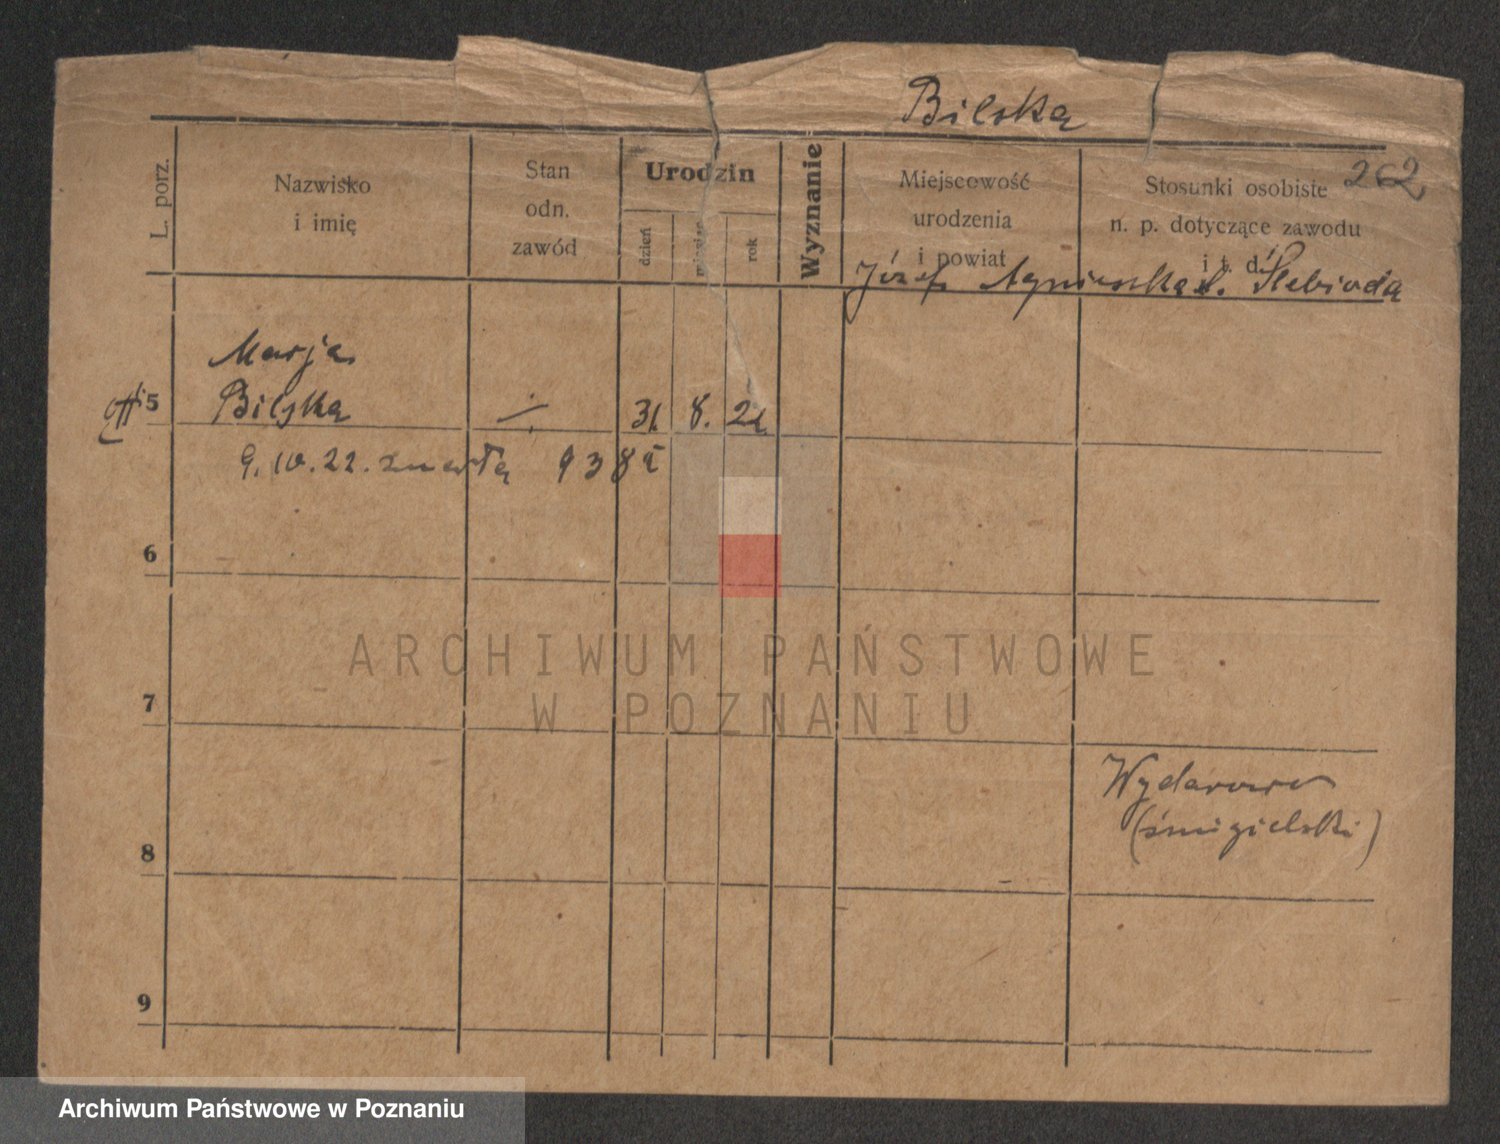 Bilska
262
L. porz.
Nazwisko
i imię
Stan
odn.
zawód
Urodzin
dzień
miesiąc
rok
Wyznanie
Miejscowość
urodzenia
i powiat
Stosunki osobiste
n. p. dotyczące zawodu
i t. d.
Józef Agnieszka Ślebioda
Marja
5 Bilska 31. 8. 22
9.10.22. zmarła 938
6
7
ARCHIWUM PAŃSTWOWE
W POZNANIU
Wydarowo
(śmigielski)
8
9
Archiwum Państwowe w Poznaniu